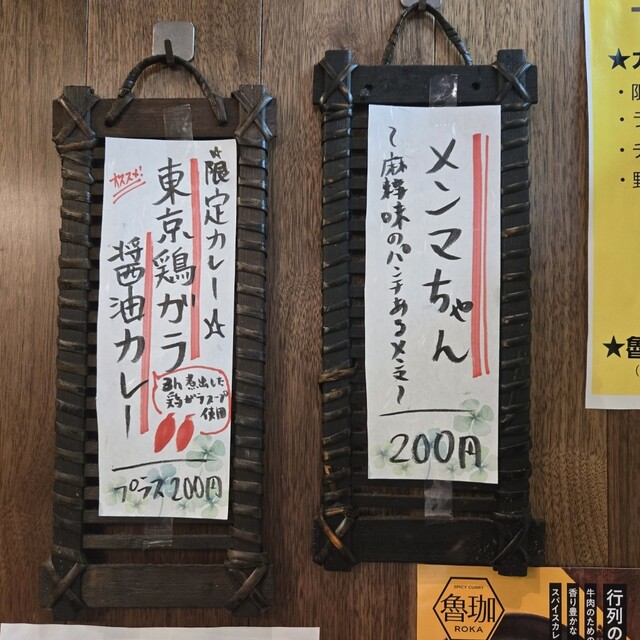 ☆限定カレー☆
東京鶏ガラ
醤油カレー
オススメ!
3h煮出した
鶏ガラスープ
使用
プラス200円
メンマちゃん
〜麻辣味のパンチあるメンマ〜
200円
SPICY CURRY
魯珈
ROKA
行列の
牛肉のための
香り豊かな
スパイスカレ